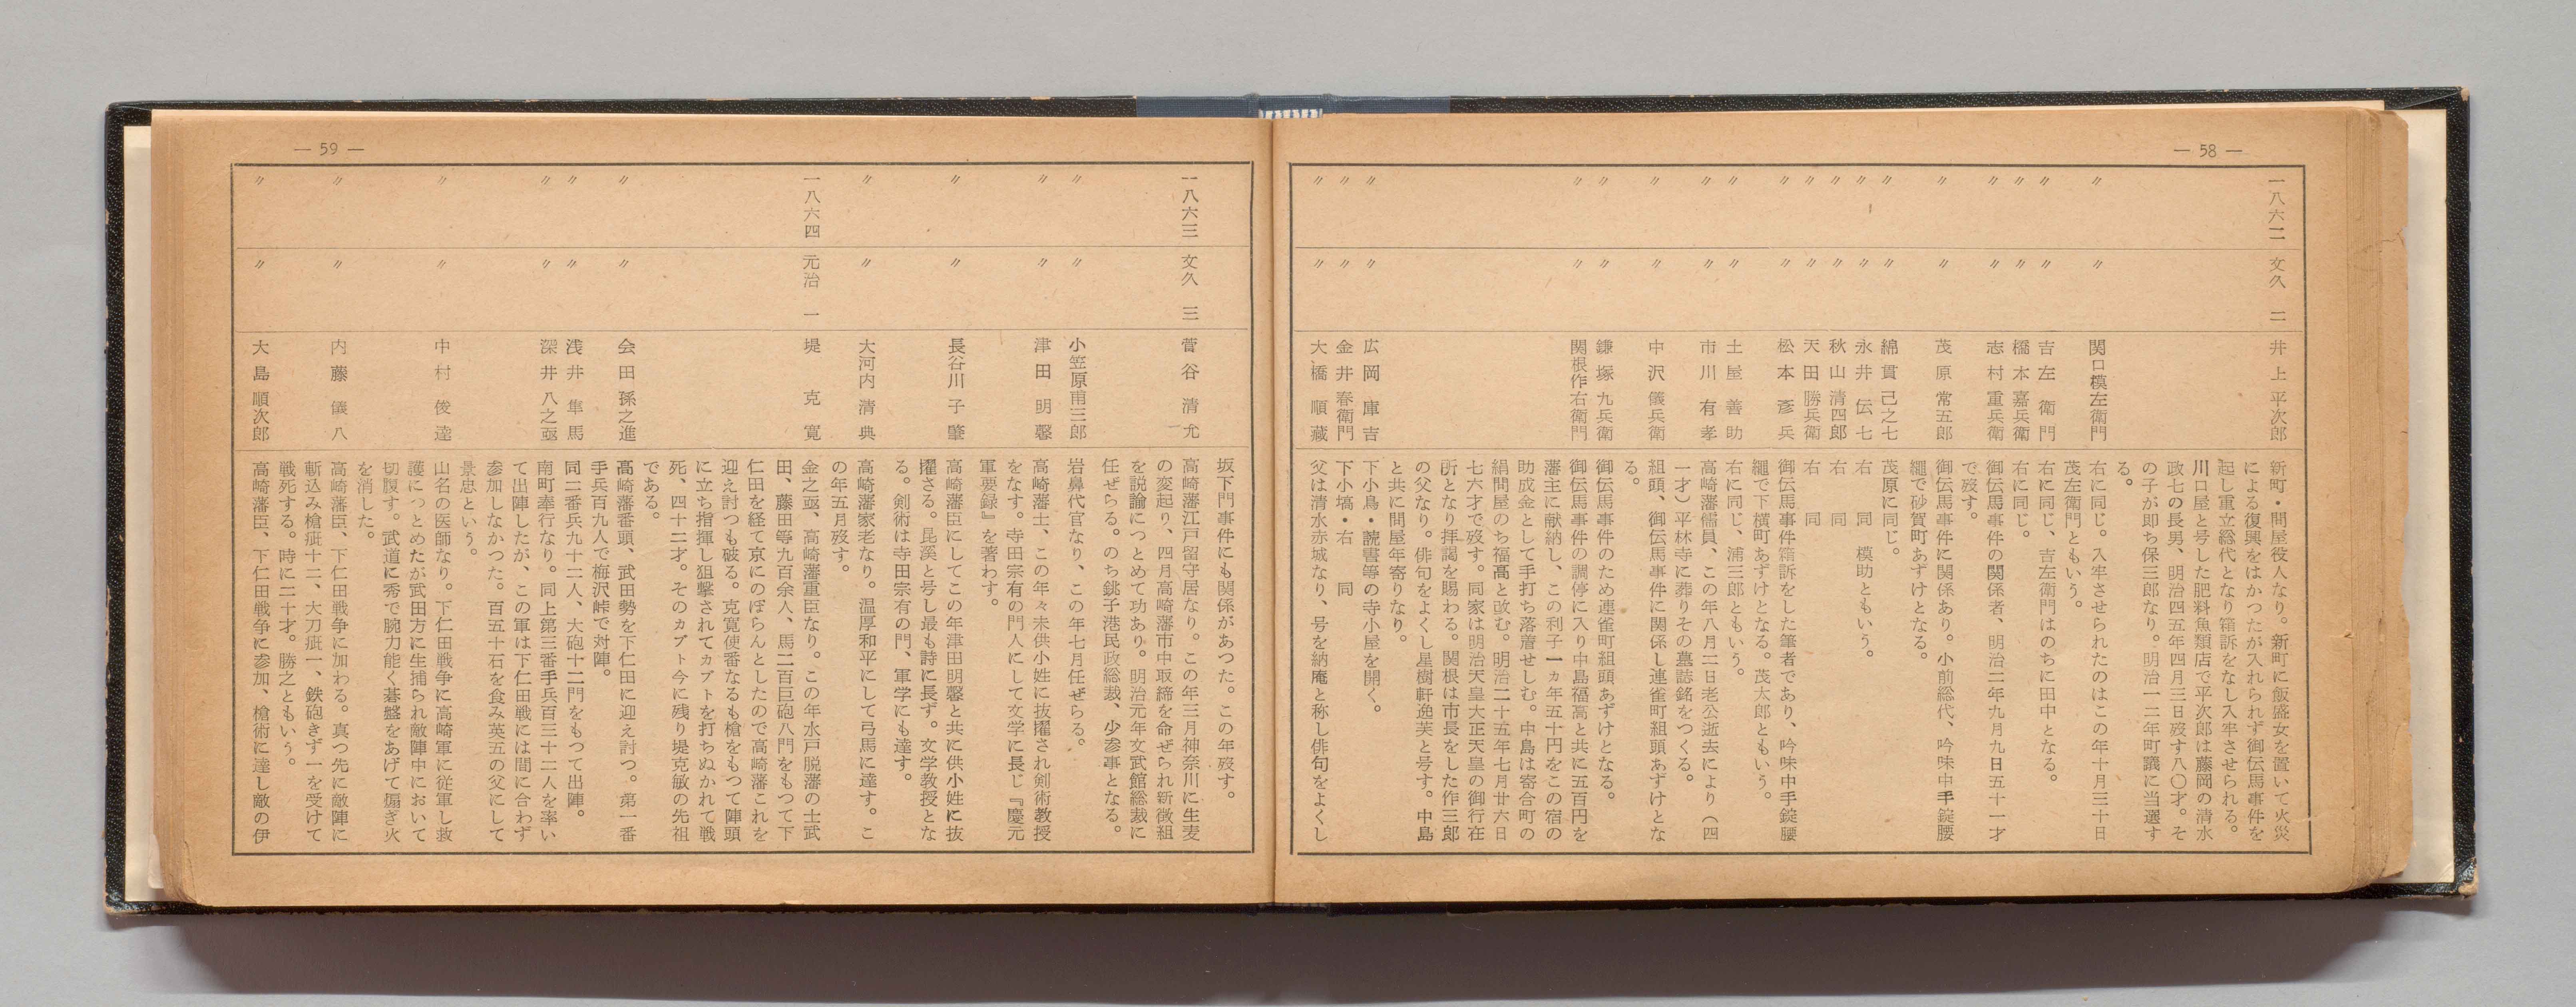 — 58 —
一八六二 文久 二 井上平次郎 新町・問屋役人なり。新町に飯盛女を置いて火災
による復興をはかつたが入れられず御伝馬事件を
起し重立総代となり箱訴をなし入牢させられる。
川口屋と号した肥料魚類店で平次郎は藤岡の清水
政七の長男、明治四五年四月三日歿す八〇才。そ
の子が即ち保三郎なり。明治一二年町議に当選す
る。
〃 〃 関口模左衛門 右に同じ。入牢させられたのはこの年十月三十日
茂左衛門ともいう。
〃 〃 吉左衛門 右に同じ、吉左衛門はのちに田中となる。
〃 〃 橋本嘉兵衛 右に同じ。
〃 〃 志村重兵衛 御伝馬事件の関係者、明治二年九月九日五十一才
で歿す。
〃 〃 茂原常五郎 御伝馬事件に関係あり。小前総代、吟味中手錠腰
縄で砂賀町あずけとなる。
〃 〃 綿貫己之七 茂原に同じ。
〃 〃 永井伝七 右 同 模助ともいう。
〃 〃 秋山清四郎 右 同
〃 〃 天田勝兵衛 右 同
〃 〃 松本彦兵 御伝馬事件箱訴をした筆者であり、吟味中手錠腰
縄で下横町あずけとなる。茂太郎ともいう。
〃 〃 土屋善助 右に同じ、浦三郎ともいう。
〃 〃 市川有孝 高崎藩儒員、この年八月二日老公逝去により（四
一才）平林寺に葬りその墓誌銘をつくる。
〃 〃 中沢儀兵衛 組頭、御伝馬事件に関係し連雀町組頭あずけとな
る。
〃 〃 鎌塚九兵衛 御伝馬事件のため連雀町組頭あずけとなる。
〃 〃 関根作右衛門 御伝馬事件の調停に入り中島福高と共に五百円を
藩主に献納し、この利子一ヵ年五十円をこの宿の
助成金として手打ち落着せしむ。中島は寄合町の
絹問屋のち福高と改む。明治二十五年七月廿六日
七六才で歿す。同家は明治天皇大正天皇の御行在
所となり拝謁を賜わる。関根は市長をした作三郎
の父なり。俳句をよくし星樹軒逸芙と号す。中島
と共に問屋年寄りなり。
〃 〃 広岡庫吉 下小鳥・読書等の寺小屋を開く。
〃 〃 金井春衛門 下小塙・右 同
〃 〃 大橋順蔵 父は清水赤城なり、号を納庵と称し俳句をよくし
— 59 —
坂下門事件にも関係があつた。この年歿す。
一八六三 文久 三 菅谷清允 高崎藩江戸留守居なり。この年三月神奈川に生麦
の変起り、四月高崎藩市中取締を命ぜられ新徴組
を説諭につとめて功あり。明治元年文武館総裁に
任ぜらる。のち銚子港民政総裁、少参事となる。
〃 〃 小笠原甫三郎 岩鼻代官なり、この年七月任ぜらる。
〃 〃 津田明馨 高崎藩士、この年々未供小姓に抜擢され剣術教授
をなす。寺田宗有の門人にして文学に長じ『慶元
軍要録』を著わす。
〃 〃 長谷川子肇 高崎藩臣にしてこの年津田明馨と共に供小姓に抜
擢さる。昆溪と号し最も詩に長ず。文学教授とな
る。剣術は寺田宗有の門、軍学にも達す。
〃 〃 大河内清典 高崎藩家老なり。温厚和平にして弓馬に達す。こ
の年五月歿す。
一八六四 元治 一 堤克寛 金之亟、高崎藩重臣なり。この年水戸脱藩の士武
田、藤田等九百余人、馬二百巨砲八門をもつて下
仁田を経て京にのぼらんとしたので高崎藩これを
迎え討つも破る。克寛使番なるも槍をもつて陣頭
に立ち指揮し狙撃されてカブトを打ちぬかれて戦
死、四十二才。そのカブト今に残り堤克敏の先祖
である。
〃 〃 会田孫之進 高崎藩番頭、武田勢を下仁田に迎え討つ。第一番
手兵百九人で梅沢峠で対陣。
〃 〃 浅井隼馬 同二番兵九十二人、大砲十二門をもつて出陣。
〃 〃 深井八之亟 南町奉行なり。同上第三番手兵百三十二人を率い
て出陣したが、この軍は下仁田戦には間に合わず
参加しなかつた。百五十石を食み英五の父にして
景忠という。
〃 〃 中村俊達 山名の医師なり。下仁田戦争に高崎軍に従軍し救
護につとめたが武田方に生捕られ敵陣中において
切腹す。武道に秀で腕力能く碁盤をあげて煽ぎ火
を消した。
〃 〃 内藤儀八 高崎藩臣、下仁田戦争に加わる。真つ先に敵陣に
斬込み槍疵十二、大刀疵一、鉄砲きず一を受けて
戦死する。時に二十才。勝之ともいう。
〃 〃 大島順次郎 高崎藩臣、下仁田戦争に参加、槍術に達し敵の伊